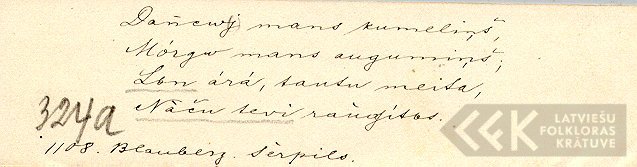 Dańcwj mans kumeliņš,
Mórgw mans augumiņš;
Lon árá, tautu meita,
Náču tevi raudzítos.
324a
1108. Blauberg. Sērpils.
LATVIEŠU
FOLKLORAS
KRĀTUVE